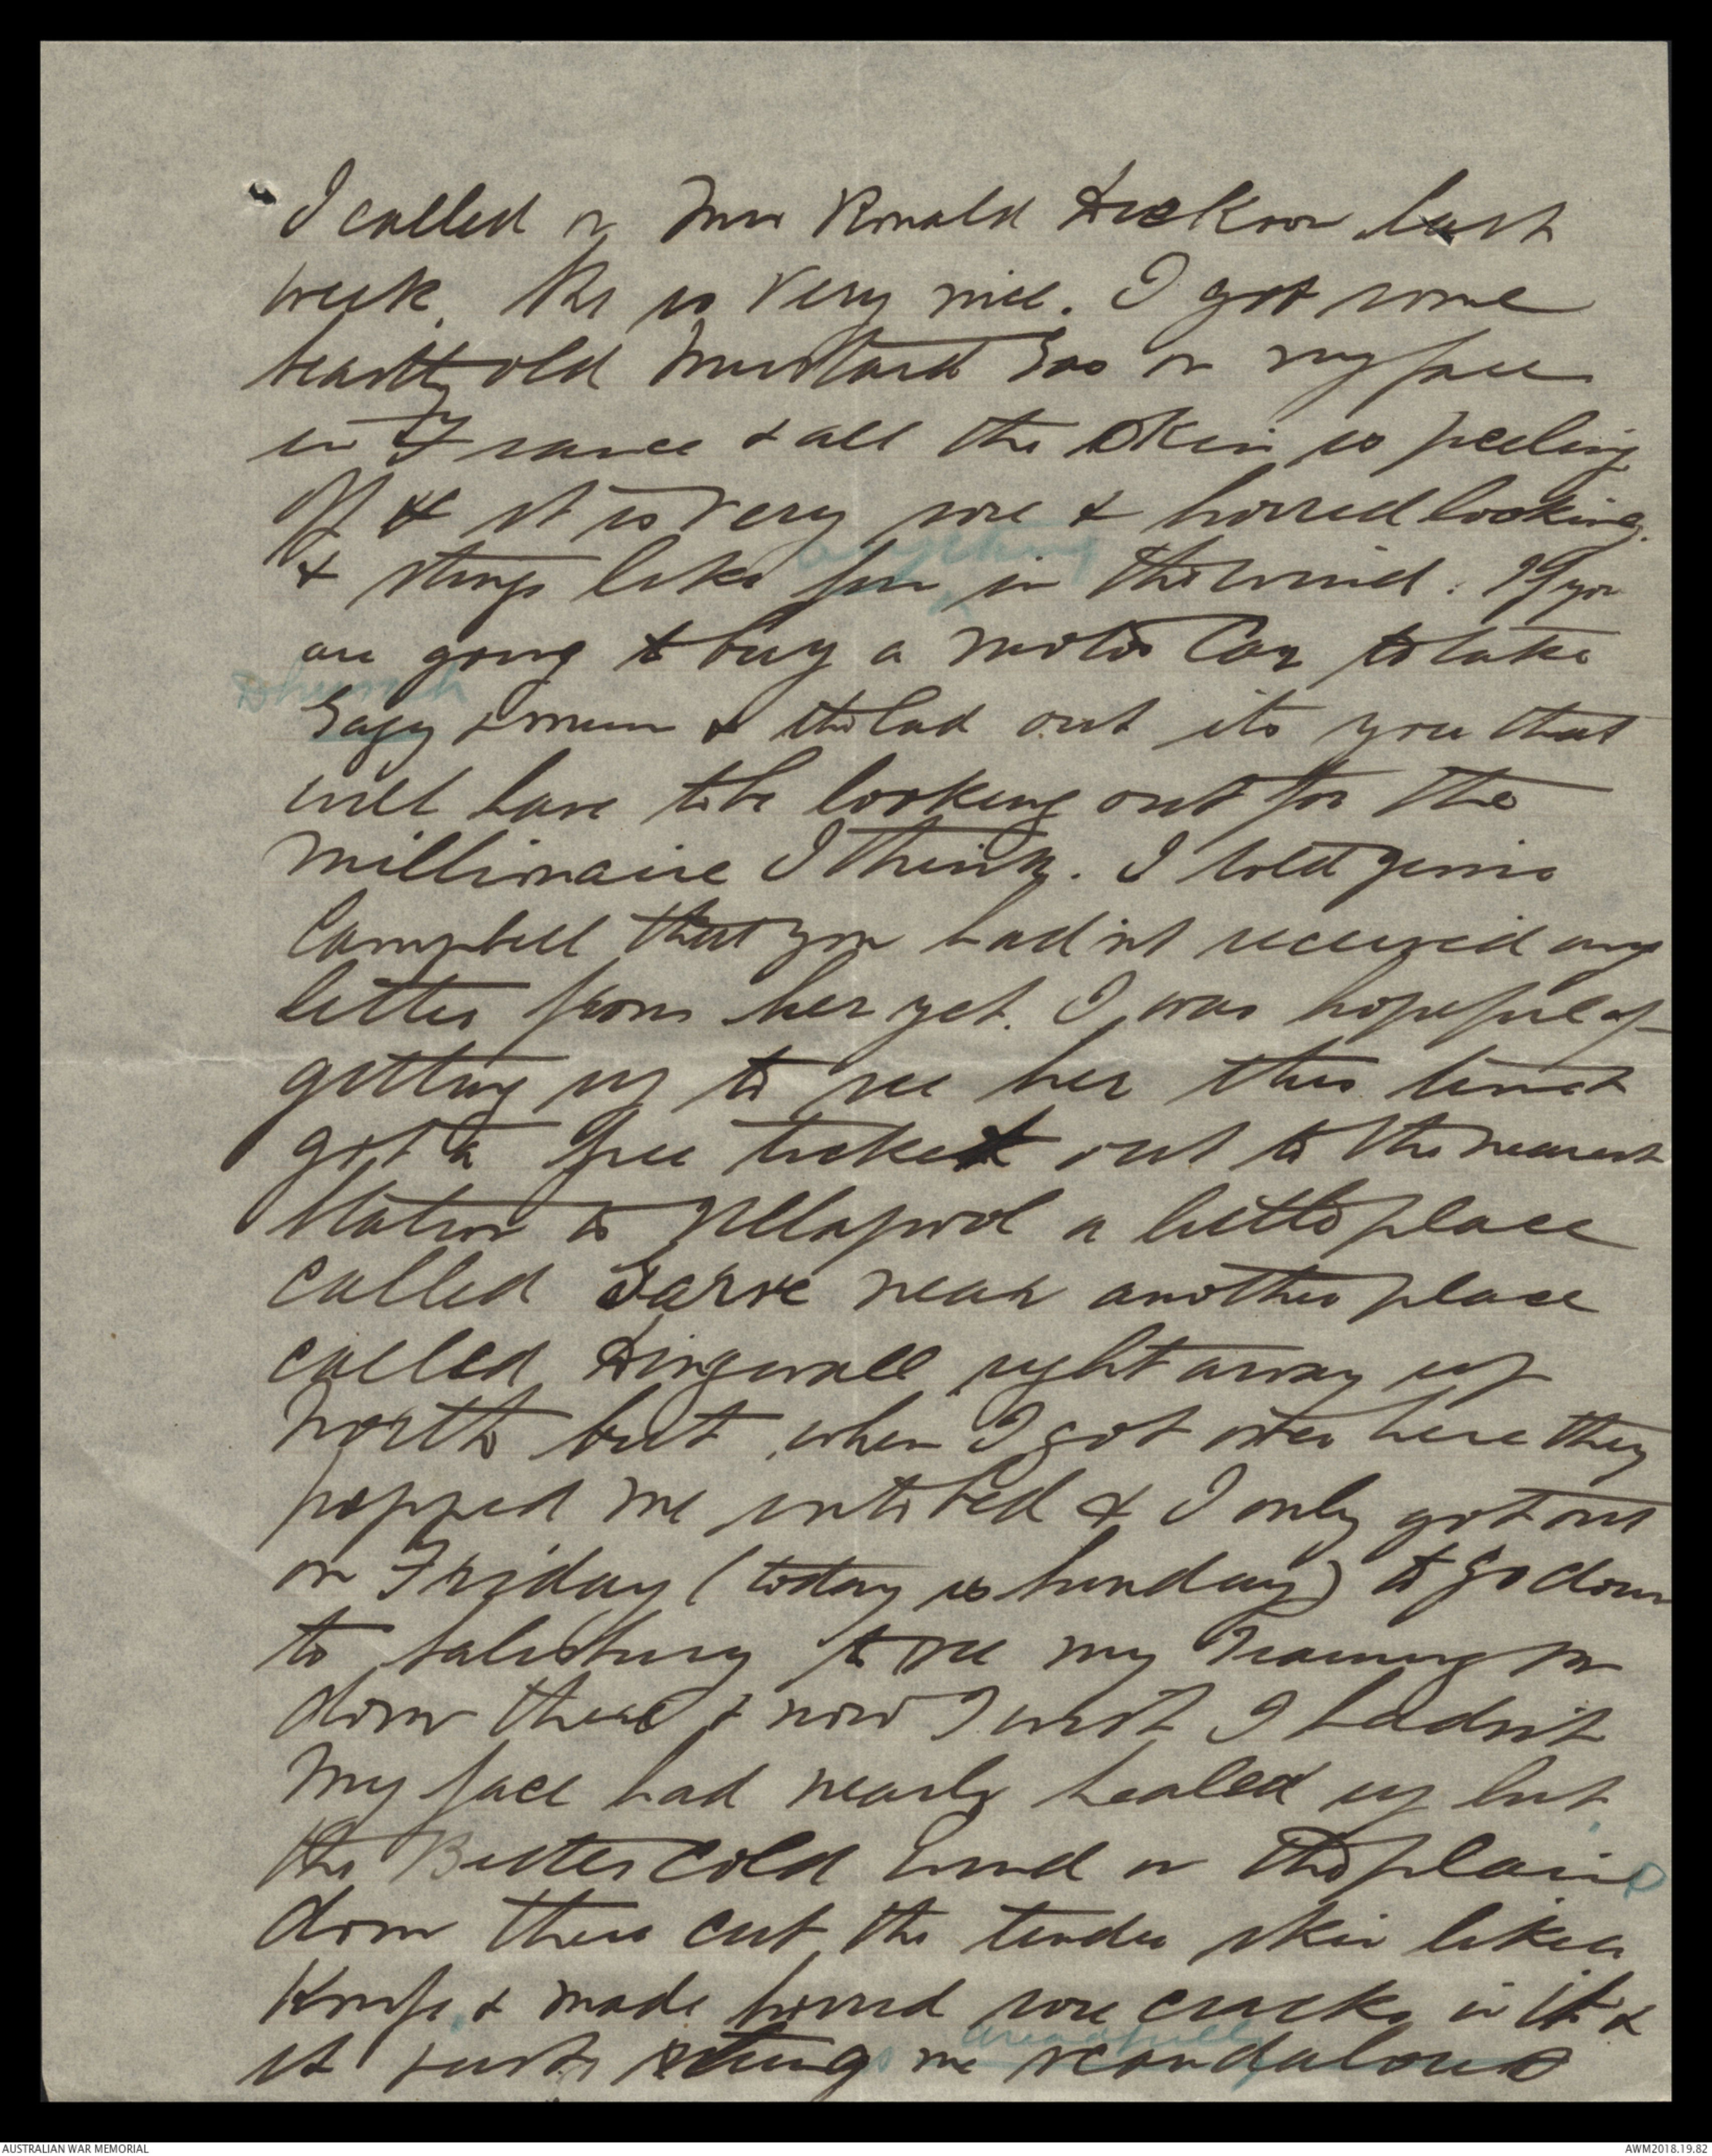 I called on Mrs Ronald Dickson last
week. She is very nice. I got some
beastly old Mustard Gas on my face
in France & all the skin is peeling
off & it is very sore & horrid looking
anything
& stings like fun in the wind. If you
are going to buy a motor car to take
Gagy & mum & the lad out its you that
will have to be looking out for the
millionaire I think. I told Jennie
Campbell that you hadnt received any
letter from her yet. I was hopeful of
getting up to see her this time &
got a free ticket out to the nearest
station to Ullapool a little place
called Garve near another place
called Dingwall right away up
North but when I got over here they
popped me into bed & I only got out
on Friday (today is Sunday) to go down
to Salisbury to see my Training Sn
down there & now I wish I hadn't
My face had nearly healed up but
the Bitter cold wind on the plains
down there cut the tender skin like a
Knife, & made horrid sore cracks in it &
dreadfully
it just stings me scandalous
AUSTRALIAN WAR MEMORIAL
AWM2018.19.82